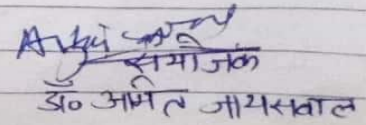 संयोजक
डॉ० अमित जायसवाल